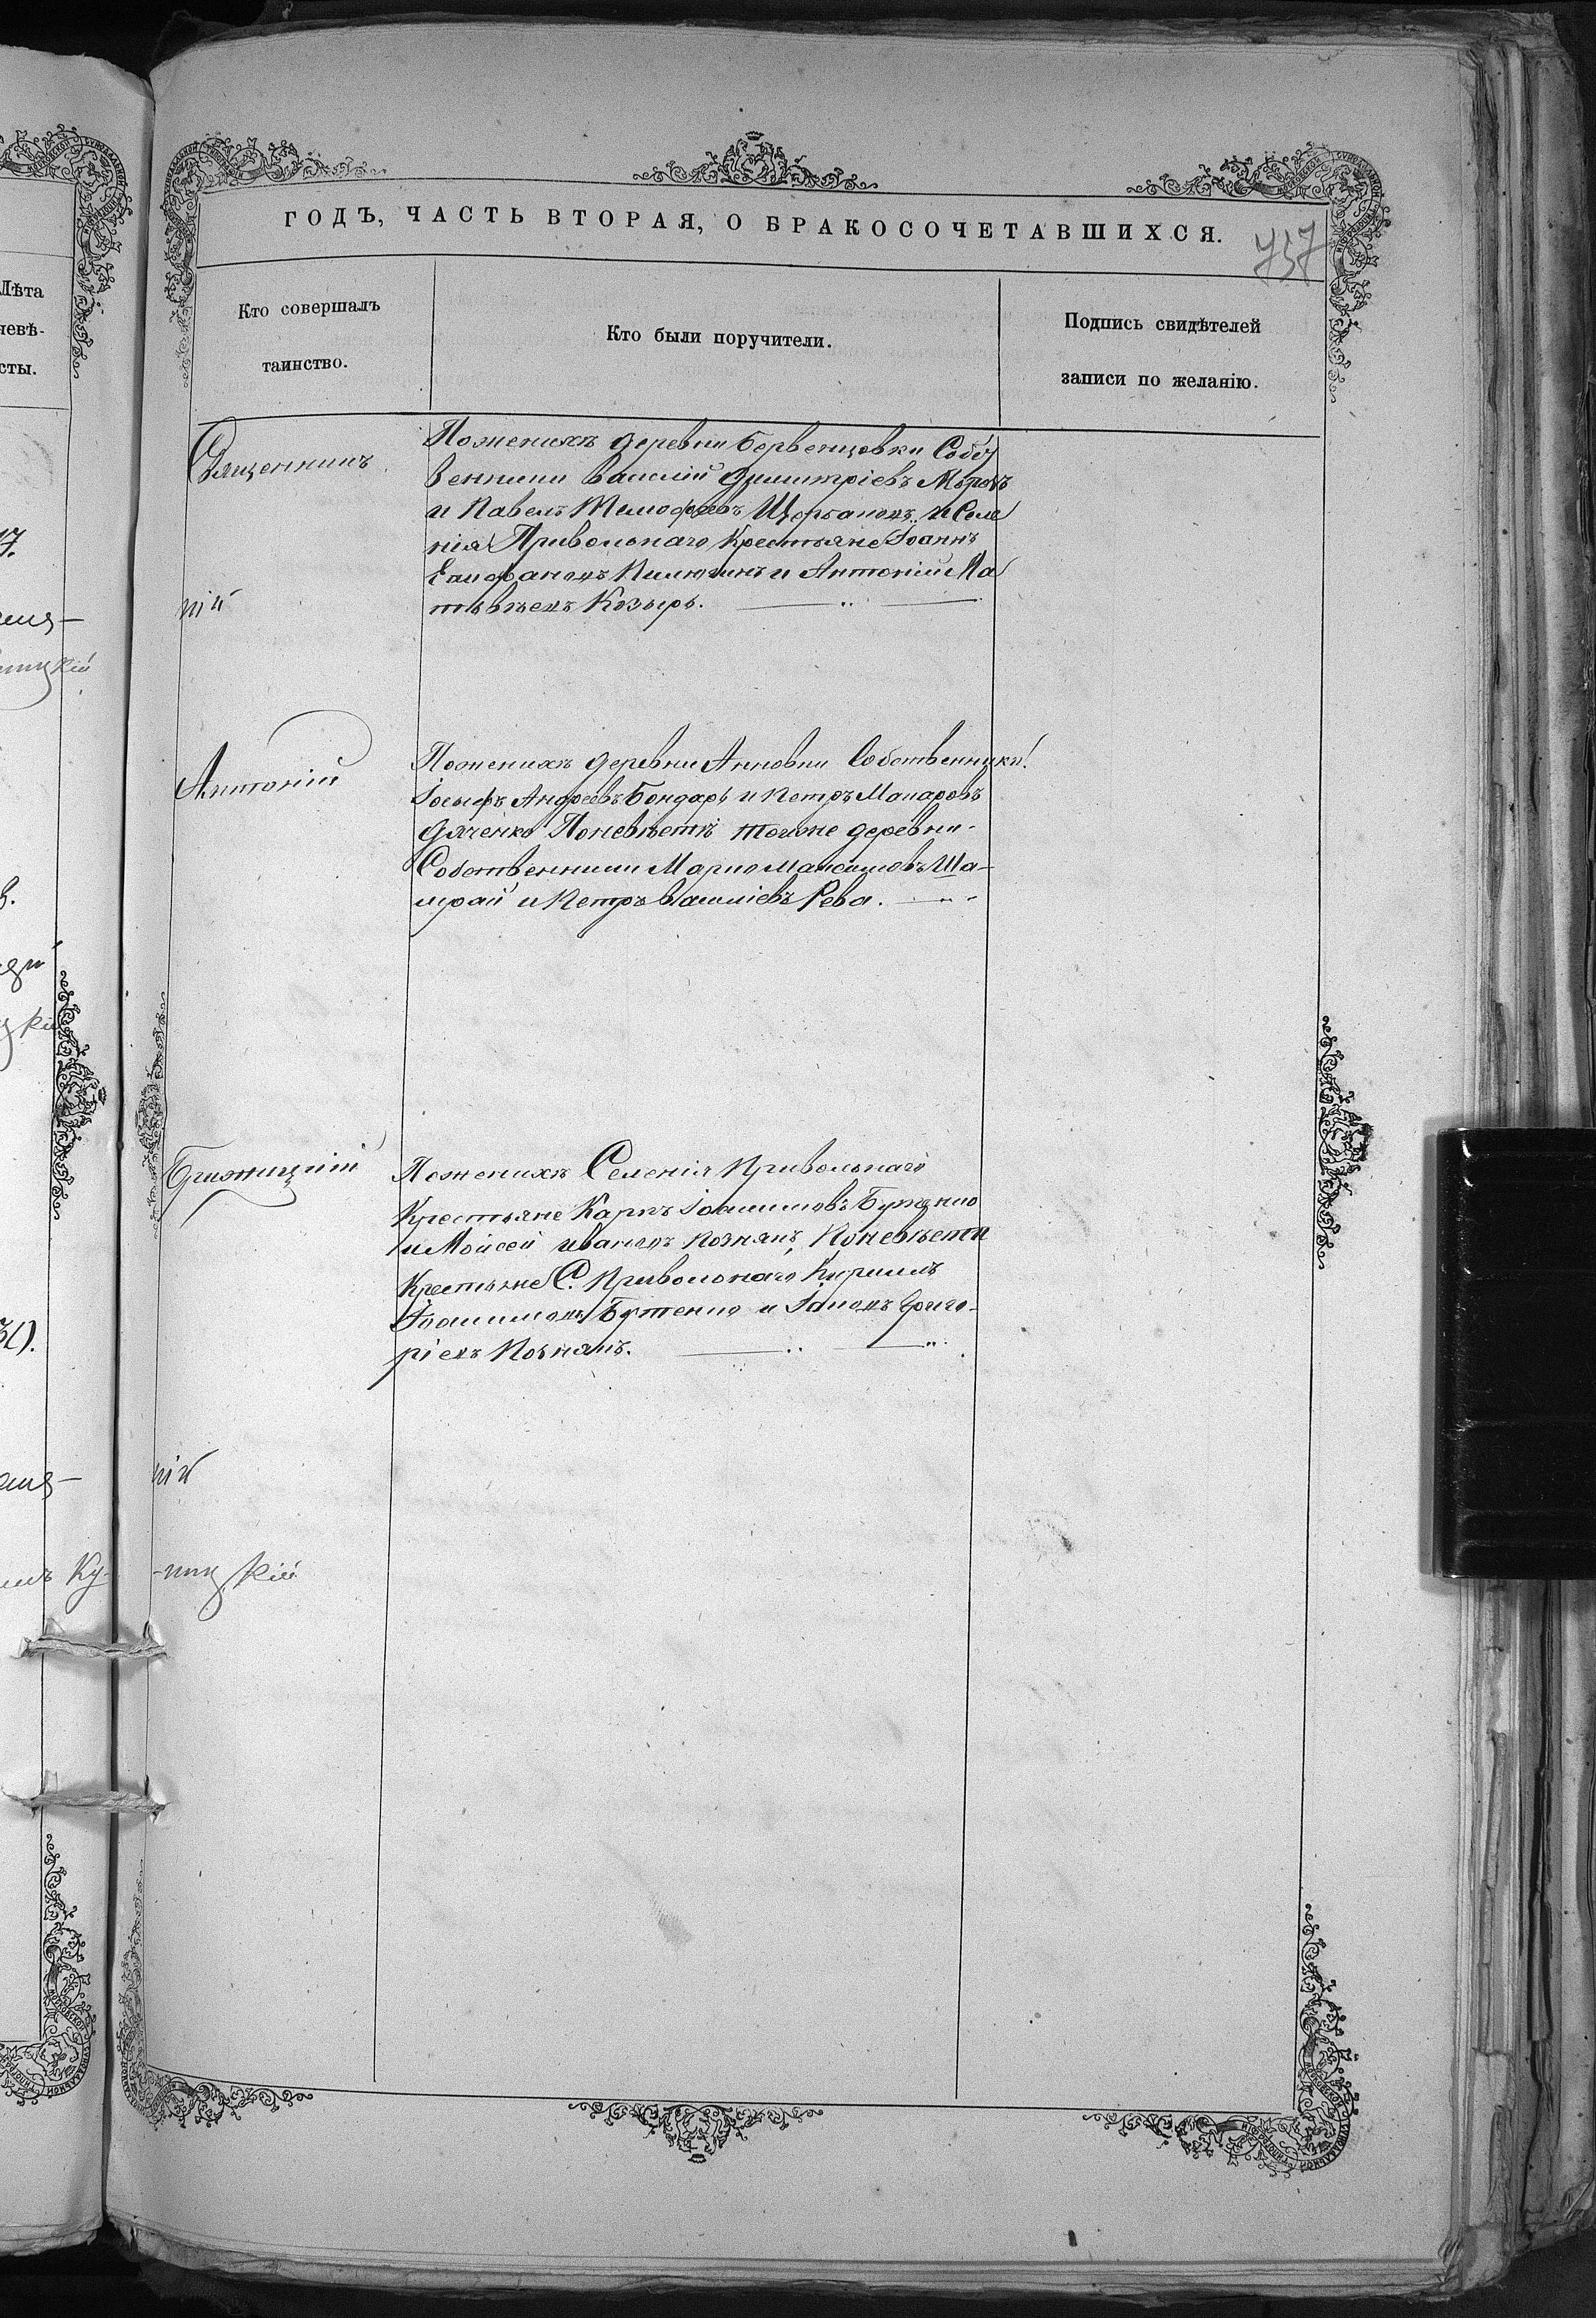 ГОДЪ, ЧАСТЬ ВТОРАЯ, О БРАКОСОЧЕТАВШИХСЯ.
737
Лѣта
невѣ-
сты.
Кто совершалъ
таинство.
Кто были поручители.
Подпись свидѣтелей
записи по желанію.
Священникъ
Поженихѣ деревни Собст
венники Василій Димитріевъ
и Павелъ Тимофеевъ и Селе
нія Привольнаго Крестьяне Іоаннъ
Епифановъ и Антоній Ма
твѣевъ Козырь.
ній
Антоній
Поженихѣ деревни Анновки Собственники
Іосифъ Андреевъ Бондарь и Петръ Макаровъ
Дяченко Поневѣстѣ тойже деревни
Собственники Марко Максимовъ Ша-
края и Петръ Василіевъ Рева.
Поженихѣ Селенія Привольнаго
Крестьяне Карпъ Іоакимовъ Бутенко
и Мойсей Ивановъ Познякъ, Поневѣстѣ
Крестьяне С. Привольнаго Кириллъ
Іоакимовъ Бутенко и Іаковъ Григо-
ріевъ Познякъ.
ній
-ницкій